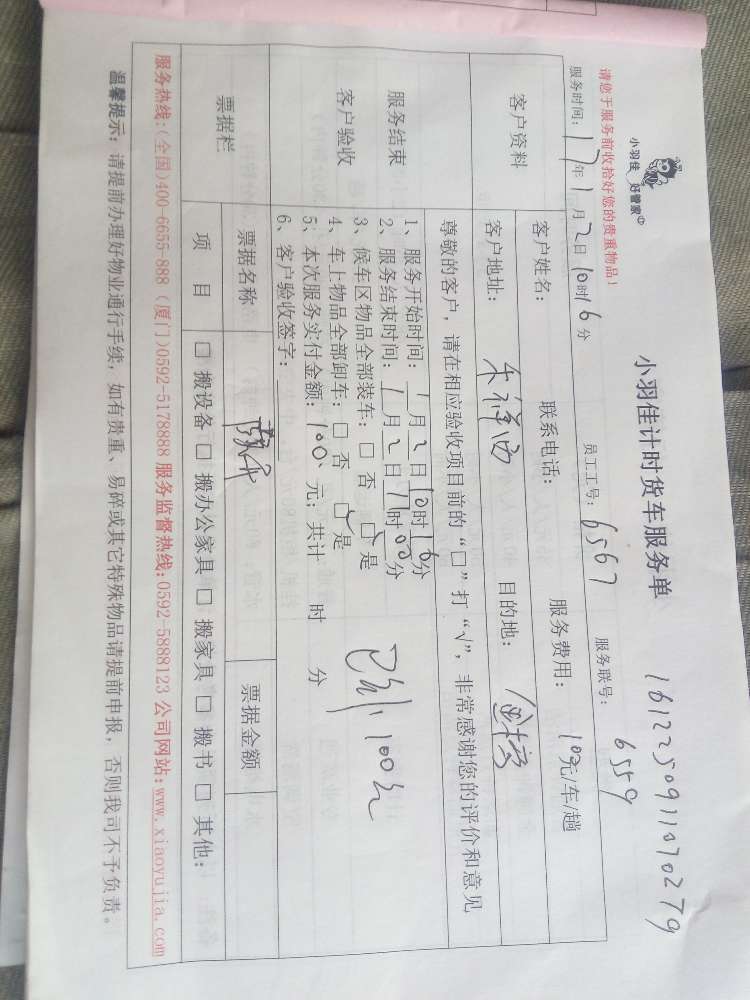 小羽佳 好管家
小羽佳计时货车服务单
1612250911070279
请您于服务前收拾好您的贵重物品！
服务时间：17年1月2日10时16分 员工工号：6567 服务联号：6559
客户资料
客户姓名： 联系电话： 服务费用：100元/车/趟
客户地址： 目的地：
尊敬的客户，请在相应验收项目前的“□”打“√”，非常感谢您的评价和意见
服务结束
客户验收
1、服务开始时间：1月2日10时16分
2、服务结束时间：1月2日11时00分
3、候车区物品全部装车：□ 否 ☑ 是
4、车上物品全部卸车：□ 否 ☑ 是
5、本次服务实付金额：100、元；共计 时 分
6、客户验收签字：
100元
票据栏
票据名称 票据金额
项 目 □ 搬设备 □ 搬办公家具 □ 搬家具 □ 搬书 □ 其他：
服务热线：(全国)400-6655-888 (厦门)0592-5178888 服务监督热线：0592-5888123 公司网站：www.xiaoyujia.com
温馨提示：请提前办理好物业通行手续，如有贵重、易碎或其它特殊物品请提前申报，否则我司不予负责。